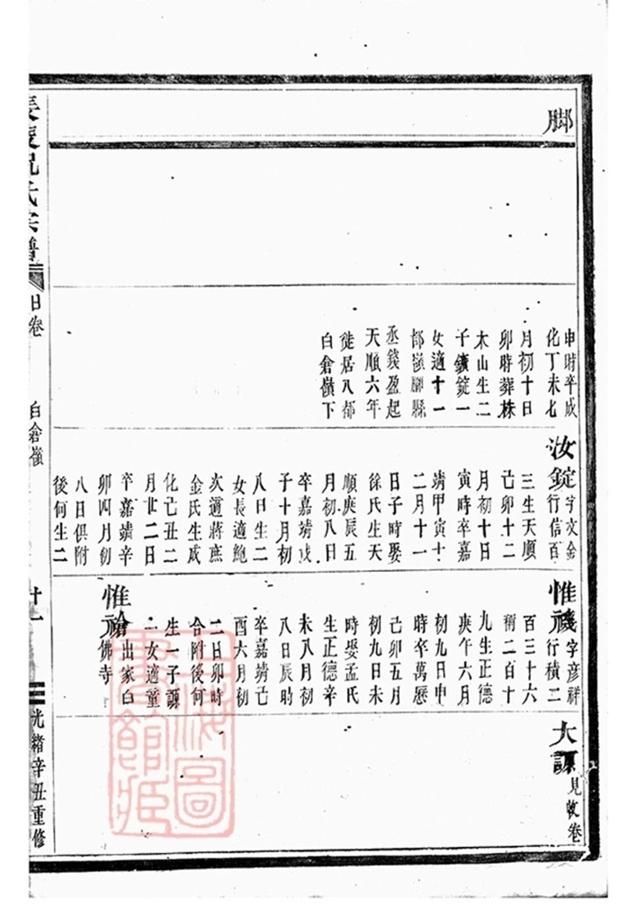 脚
申時卒成
化丁未七
月初十日
卯時葬株
木山生二
子鑌錠一
女適十一
都嶺腳縣
丞錢盈起
天順六年
徙居八都
白倉嶺下
汝錠 字文金
行信百
三生天順
己卯十二
月初十日
寅時卒嘉
靖甲寅十
二月十一
日子時娶
徐氏生天
順庚辰五
月初八日
卒嘉靖戊
子十月初
八日生二
女長適鮑
次適蔣庶
金氏生成
化己丑二
月廿二日
卒嘉靖辛
卯四月初
八日俱附
後何生二
惟 字彥祥
行積二
百三十六
稱二百十
九生正德
庚午六月
初九日申
時卒萬曆
己卯五月
初九日未
時娶孟氏
生正德辛
未八月初
八日辰時
卒嘉靖己
酉六月初
二日卯時
合附後何
生一子謙
一女適童
惟禬 出家白
佛寺
大謙 見收卷
氏宗譜
日卷
白倉嶺
廿一
光緒辛丑重修
上海圖書館藏